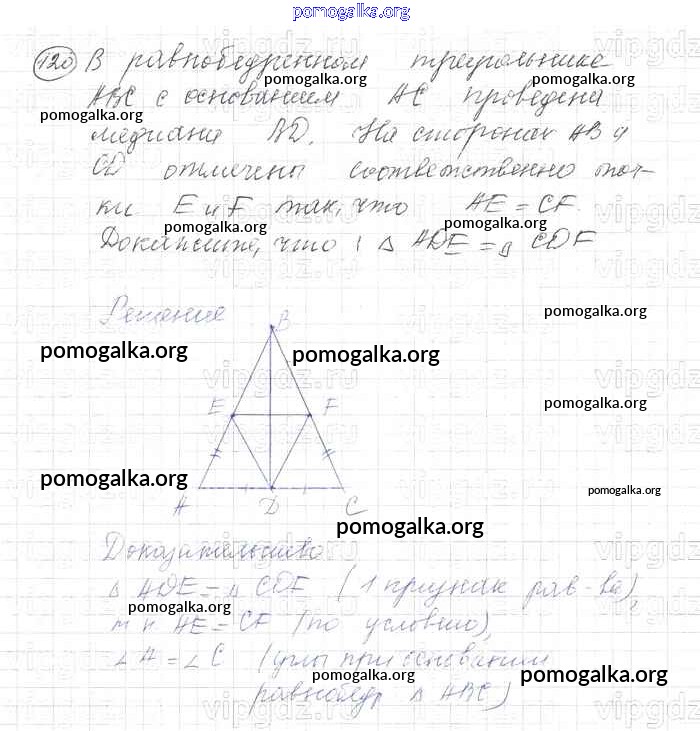 pomogalka.org
120 В равнобедренном треугольнике
pomogalka.org pomogalka.org
ABC с основанием AC проведена
pomogalka.org
медиана BD. На сторонах AB и
CD отмечены соответственно точ-
pomogalka.org
ки E и F так, что AE = CF.
pomogalka.org
Докажите, что: Δ ADE = Δ CDF
Решение
pomogalka.org
B
pomogalka.org pomogalka.org
E F
pomogalka.org
pomogalka.org
pomogalka.org
A D C
pomogalka.org
Доказательство
Δ ADE = Δ CDF (1 признак рав-ва),
pomogalka.org
т к AE = CF (по условию),
∠A = ∠C (углы при основании
pomogalka.org pomogalka.org
равнобедр Δ ABC)